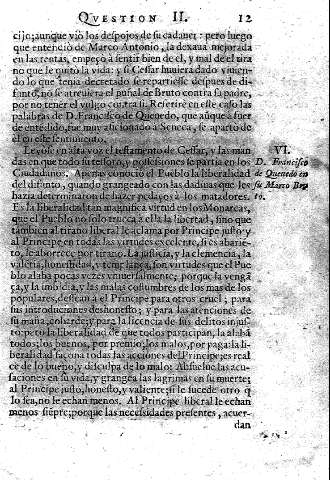 QVESTION II. 12
cijo; aunque viò los despojos de su cadauer: pero luego
que entendiò de Marco Antonio, la dexaua mejorada
en las rentas, empeçò a sentir bien de el, y mal de el tira
no que le quitò la vida: y si Cessar huuiera dado viuien
do lo que tenia decretado se repartiesse despues de di-
funto, no se atreuiera el puñal de Bruto contra su padre,
por no tener el vulgo contra si. Referire en este caso las
palabras de D. Francisco de Queuedo, que aũque a fuer
de entendido, fue muy aficionado a Seneca, se aparto de
el en este sentimiento.
Leyose en alta voz el testamento de Cessar, y las man
das en que todo su tesoro, y possessiones se partia en los
Ciudadanos. Apenas conociò el Pueblo la liberalidad
del difunto, quando grangeado con las dadiuas que les
hazia determinaron de hazer pedaços a los matadores.
Es la liberalidad tan magnifica virtud en los Monarcas,
que el Pueblo no solo trueca a ella la libertad, sino que
tambien al tirano liberal le aclama por Principe justo: y
al Principe en todas las virtudes excelente, si es abarie-
to, le aborrece por tirano. La justicia, y la clemencia, la
valentia, honestidad, y templança, son virtudes que el Pue
blo alaba pocas vezes vniuersalmente; porque la vengã
ça, y la imbidia, y las malas costumbres de los mas de los
populares, desean a el Principe para otros cruel; para
sus introduciones deshonesto; y para las atenciones de
su maña, cobarde; y para la licencia de sus delitos injus-
to, pero la liberalidad de que todos participan, la alabã
todos; los buenos, por premio; los malos, por paga: la li-
beralidad sacona todas las acciones del Principe; es real
ce de lo bueno, y disculpa de lo malo: Absuelue las acu-
saciones en su vida, y grangea las lagrimas en su muerte;
al Principe justo, honesto, y valiente, si le sucede otro q
lo sea, no le echan menos. Al Principe liberal le echan
menos siẽpre; porque las necessidades presentes, acuer-
dan
VI.
D. Francisco
de Queuedo en
su Marco Bru
to.